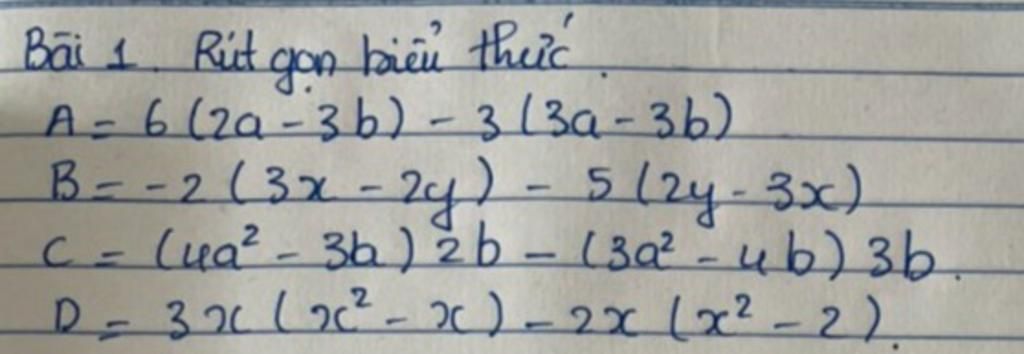 Bài 1. Rút gọn biểu thức.
A = 6 (2a - 3b) - 3 (3a - 3b)
B = -2 (3x - 2y) - 5 (2y - 3x)
C = (4a² - 3b) 2b - (3a² - 4b) 3b.
D = 3x (x² - x) - 2x (x² - 2).